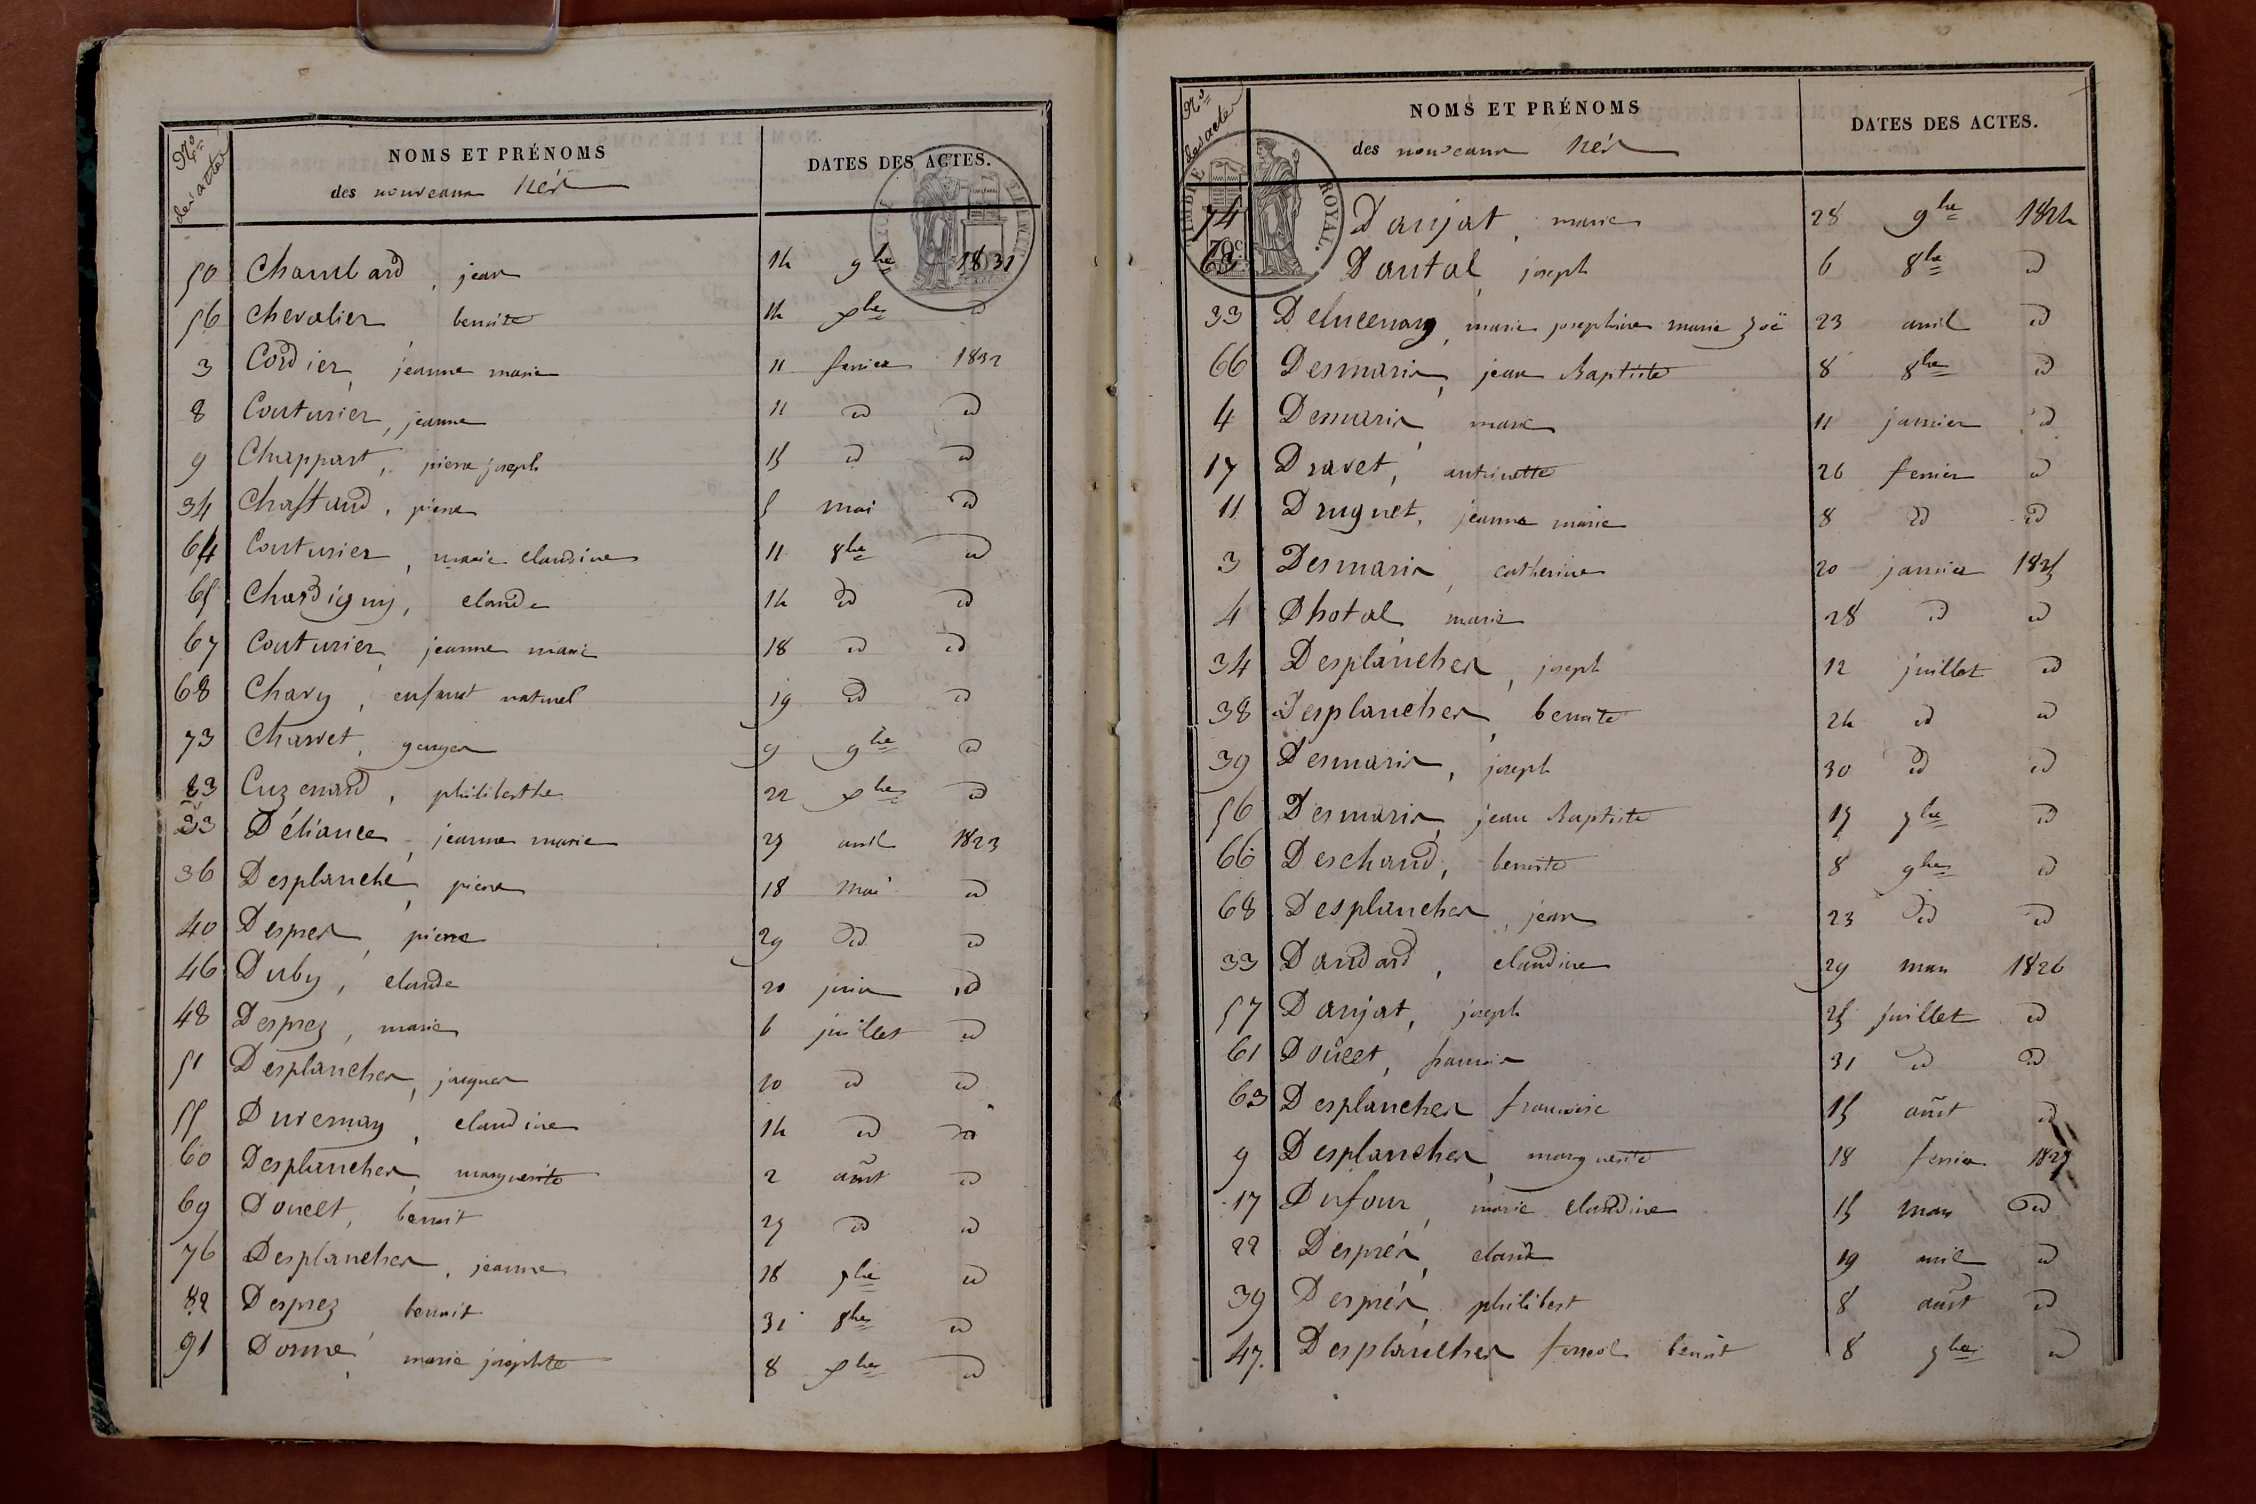 Nos des actes
NOMS ET PRÉNOMS
des nouveaux Nés
DATES DES ACTES.
50 Chambard, jean 14 9bre 1831
56 Chevalier benoite 14 xbre id
3 Cordier, jeanne marie 11 fevrier 1832
8 Couturier, jeanne 11 id id
9 Chappart, pierre joseph 15 id id
34 Chastaud, pierre 5 mai id
64 Couturier, marie claudine 11 8bre id
65 Chardigny, claude 14 id id
67 Couturier, jeanne marie 18 id id
68 Chary, enfant naturel 19 id id
73 Charvet, georges 9 9bre id
83 Cuzenard, philiberthe 22 xbre id
33 Déliance, jeanne marie 27 avril 1823
36 Desplanche, pierre 18 mai id
40 Despres, pierre 29 id id
46 Duby, claude 20 juin id
48 Desprez, marie 6 juillet id
51 Desplanches, jacques 10 id id
55 Duvernay, claudine 14 id id
60 Desplanches, marguerite 2 août id
69 Doucet, benoit 27 id id
76 Desplanches, jeanne 18 7bre id
82 Desprez benoit 31 8bre id
91 Donné, marie josephte 8 xbre id
Nos des actes
NOMS ET PRÉNOMS
des nouveaux Nés
DATES DES ACTES.
TIMBRE ROYAL.
70c
74 Danjat, marie 28 9bre 1824
63 Dautal, joseph 6 8bre id
33 Delucenay, marie josephine marie zoë 23 avril id
66 Desmaris, jean Baptiste 8 8bre id
4 Desmaris, marie 11 janvier id
17 Dravet, antoinette 26 fevrier id
11 Druguet, jeanne marie 8 id id
3 Desmaris, catherine 20 janvier 1825
4 Dhotal marie 28 id id
34 Desplanches, joseph 12 juillet id
38 Desplanches, benoite 24 id id
39 Desmaris, joseph 30 id id
56 Desmaris, jean Baptiste 17 7bre id
66 Deschaud, benoite 8 9bre id
68 Desplanches, jean 23 id id
33 Daudard, claudine 29 mars 1826
57 Danjat, joseph 25 juillet id
61 Doucet, francois 31 id id
63 Desplanches francoise 15 août id
9 Desplanches, marguerite 18 fevrier 1827
17 Dufour, marie claudine 15 mars id
22 Després, claude 19 avril id
39 Després, philibert 8 août id
47. Desplanches benoit 8 7bre id